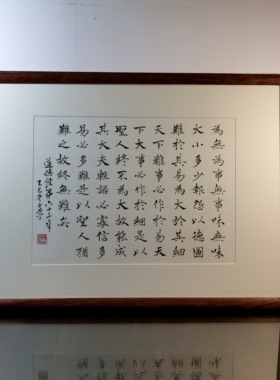 為無為事無事味無味
大小多少報怨以德圖
難於其易為大於其細
天下難事必作於易天
下大事必作於細是以
聖人終不為大故能成
其大夫輕諾必寡信多
易必多難是以聖人猶
難之故終無難矣
道德經第六十三章